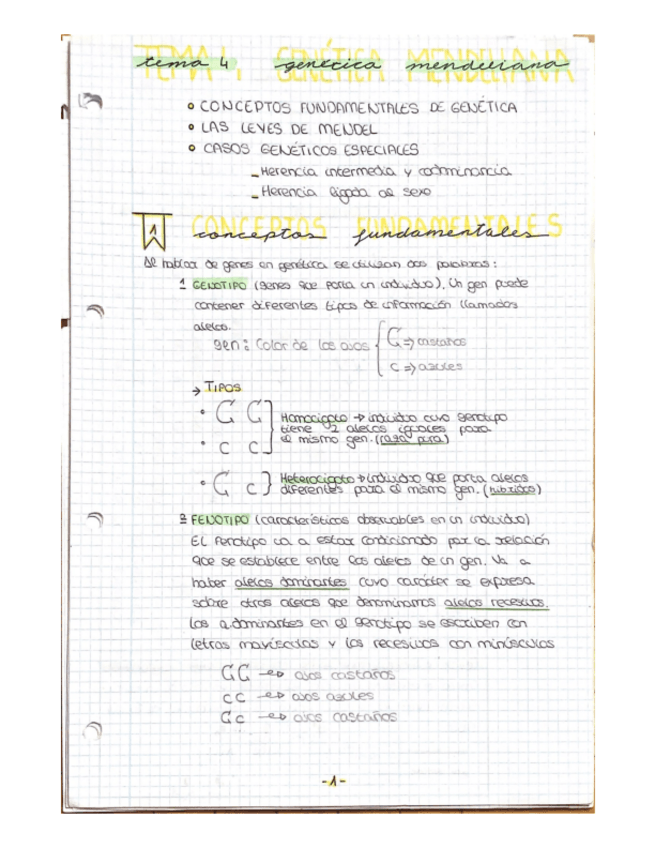 TEMA 4. GENÉTICA MENDELIANA
tema 4 genética mendeliana
CONCEPTOS FUNDAMENTALES DE GENÉTICA
LAS LEYES DE MENDEL
CASOS GENÉTICOS ESPECIALES
- Herencia intermedia y codominancia
- Herencia ligada al sexo
1 CONCEPTOS FUNDAMENTALES
conceptos fundamentales
Al hablar de genes en genética se utilizan dos palabras:
1 GENOTIPO (genes que porta un individuo). Un gen puede
contener diferentes tipos de información llamados
alelos.
gen: Color de los ojos { C => castaños
c => azules
→ TIPOS
C C
c c
Homocigoto → individuo cuyo genotipo
tiene 2 alelos iguales para
el mismo gen. (raza pura)
C c } Heterocigoto → individuo que porta alelos
diferentes para el mismo gen. (híbridos)
2 FENOTIPO (características observables en un individuo)
El fenotipo va a estar condicionado por la relación
que se establece entre los alelos de un gen. Va a
haber alelos dominantes cuyo carácter se expresa
sobre otros alelos que denominamos alelos recesivos.
Los dominantes en el genotipo se escriben con
letras mayúsculas y los recesivos con minúsculas
CC → ojos castaños
cc → ojos azules
Cc → ojos castaños
-1-